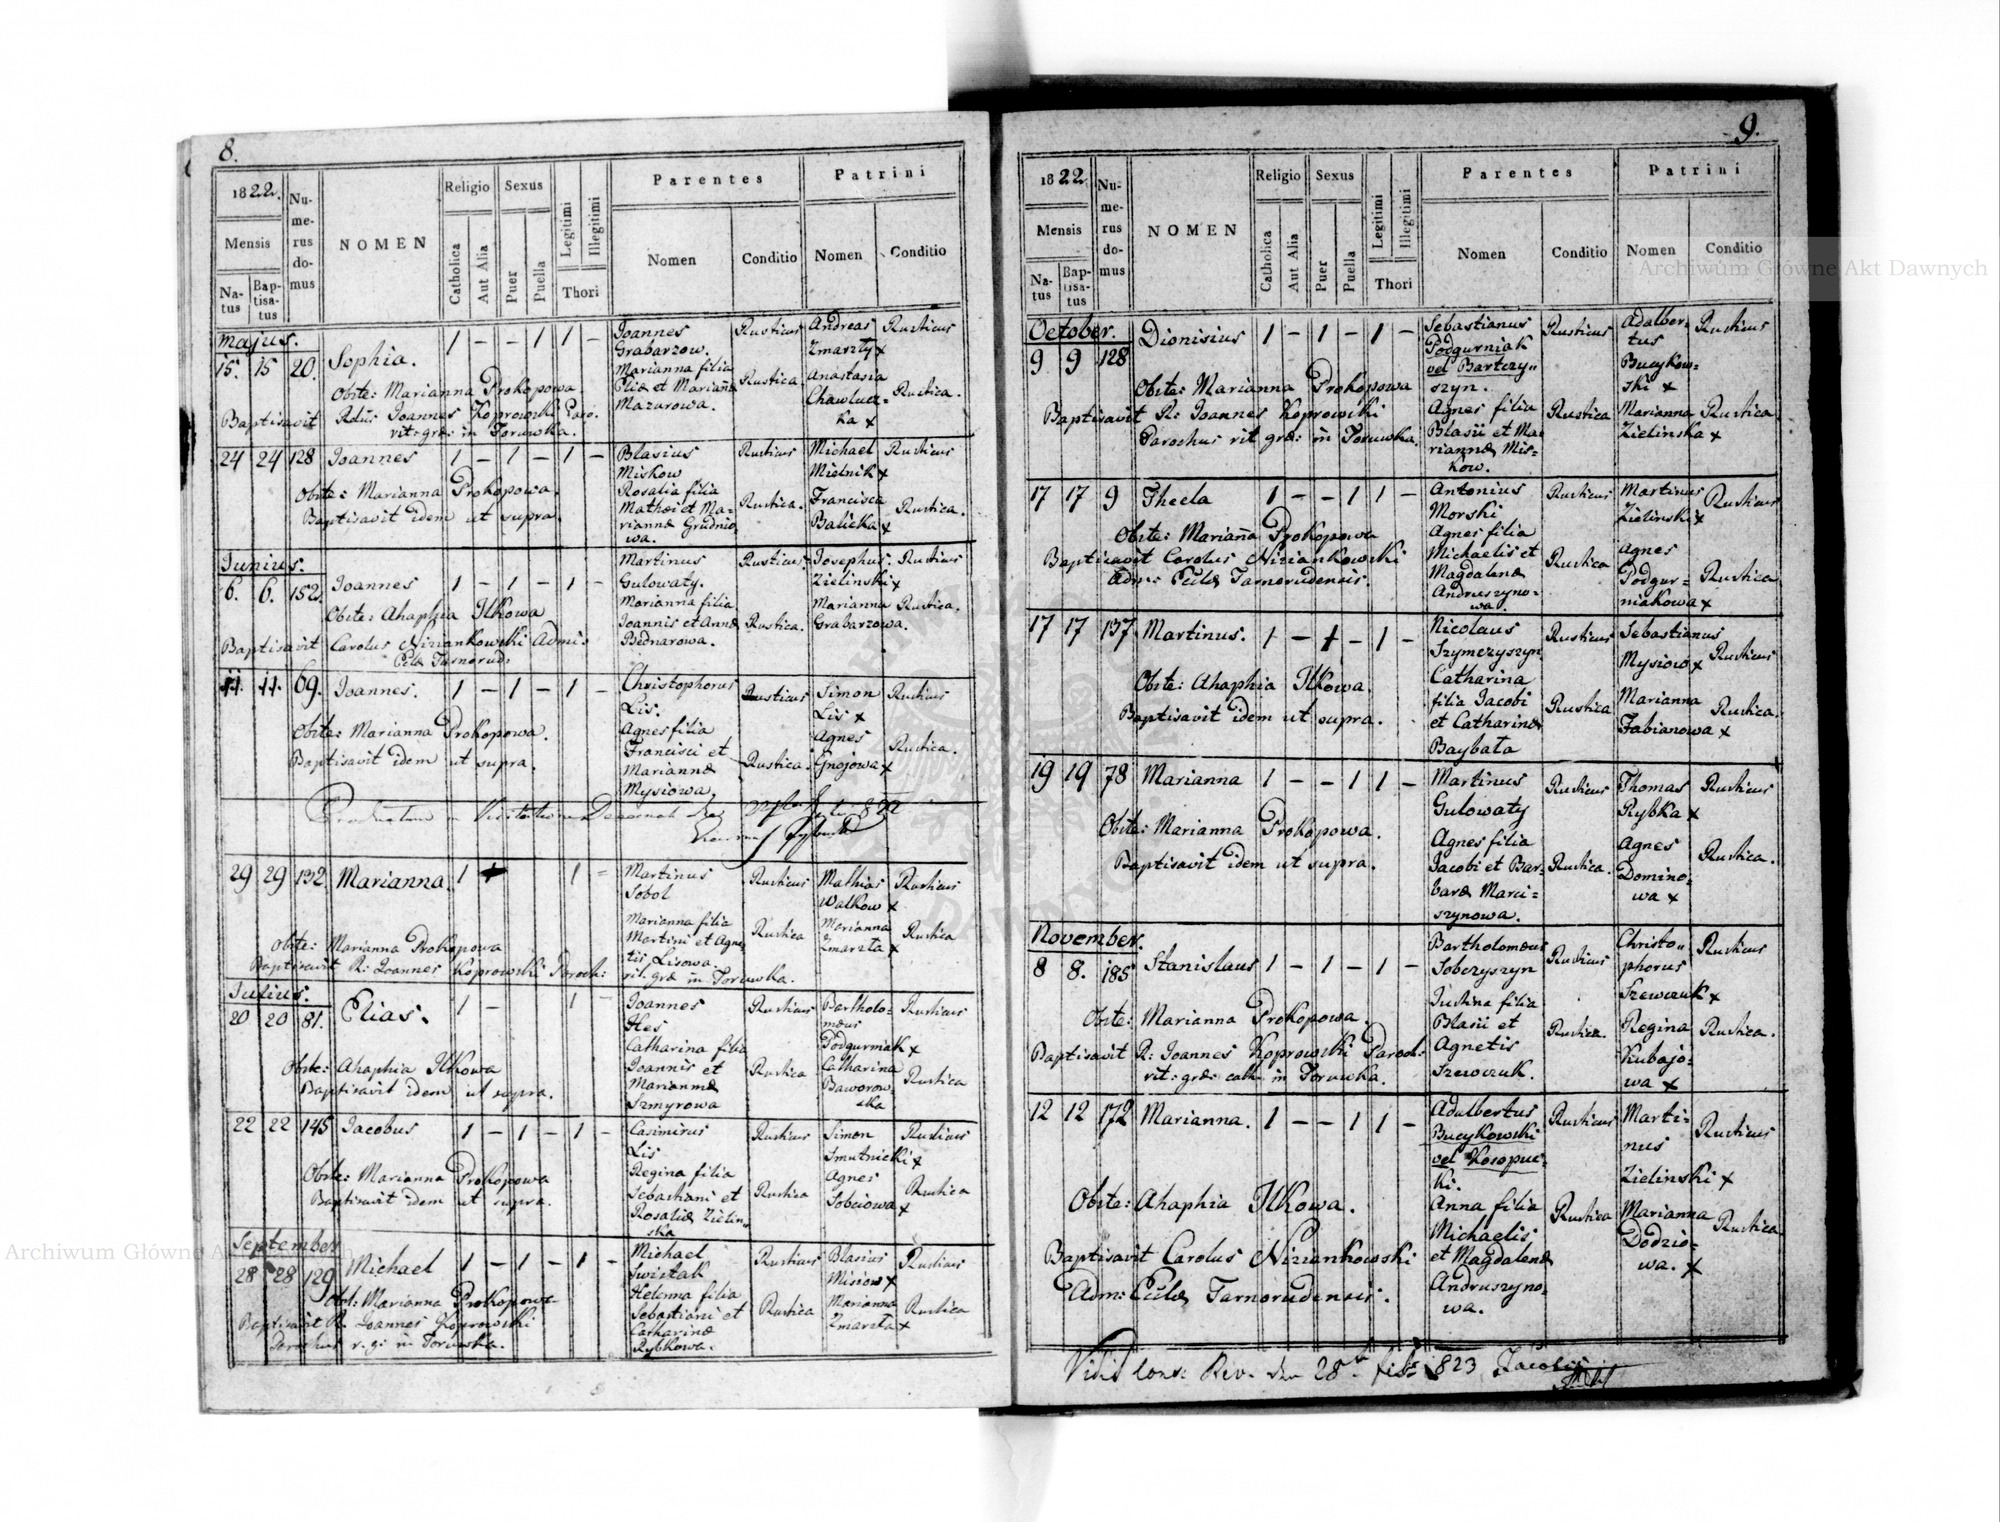 8.
1822.
Mensis
Natus
Baptisatus
Numerus domus
NOMEN
Religio
Catholica
Aut Alia
Sexus
Puer
Puella
Legitimi
Illegitimi
Thori
Parentes
Nomen
Conditio
Patrini
Nomen
Conditio
Majus.
15. 15 20. Sophia. 1 – – 1 1 –
Joannes Rusticus Andreas Rusticus
Grabarzow. Zmarzty x
Marianna filia Anastasia
Eliæ et Mariañæ Rustica Chawlucz- Rustica.
Mazurowa. ka x
Obste: Marianna Prokopowa
Baptisavit Rdus Joannes Koprowski Paro.
rit: græ: in Toruwka.
24 24 128 Joannes 1 – 1 – 1 –
Blasius Rusticus Michael Rusticus
Miskow Mielnik x
Rosalia filia Francisca
Mathæi et Ma- Rustica. Balicka x Rustica.
riannæ Grudnio
wa.
Obste: Marianna Prokopowa.
Baptisavit idem ut supra.
Junius.
6. 6. 152. Joannes 1 – 1 – 1 –
Martinus Rusticus Josephus Rusticus
Gulowaty. Zielinski x
Marianna filia Marianna Rustica.
Joannis et Annæ Rustica. Grabarzowa.
Bednarowa.
Obste: Ahaphia Ilkowa
Baptisavit Carolus Niziankowski Admis
Eclæ Tarnorud:
11. 11. 69. Joannes. 1 – 1 – 1 –
Christophorus Rusticus Simon Rusticus
Lis. Lis x
Agnes filia Agnes
Francisci et Gnojowa x Rustica.
Mariannæ Rustica.
Mysiowa.
Obste: Marianna Prokopowa.
Baptisavit idem ut supra.
29 29 132 Marianna. 1 1 –
Martinus Rusticus Mathias Rusticus
Sobol Walkow x
Marianna filia Rustica Marianna Rustica
Martini et Agne Zmarzta x
tis Lisowa.
Obste: Marianna Prokopowa
Baptisavit R. Joannes Koprowski Paroch:
rit. græ in Toruwka.
Julius.
20 20 81. Elias. 1 – 1 –
Joannes Rusticus Bartholo- Rusticus
Hes mæus
Catharina filia Podgurniak x
Joannis et Rustica Catharina Rustica
Mariannæ Baworow-
Szmyrowa ska
Obste: Ahaphia Ilkowa
Baptisavit idem ut supra.
22 22 145 Jacobus 1 – 1 – 1 –
Casimirus Rusticus Simon Rusticus
Lis Smutnicki x
Regina filia Agnes
Sebastiani et Rustica Sobciowa x Rustica
Rosaliæ Zielin-
ska
Obste: Marianna Prokopowa
Baptisavit idem ut supra.
September
28 28 129 Michael 1 – 1 – 1 –
Michael Rusticus Blasius Rusticus
Swistak Misiow x
Helenna filia Marianna
Sebastiani et Rustica Zmarzta x Rustica
Catharinæ
Rybkowa.
Obst: Marianna Prokopowa
Baptisavit R. Joannes Koprowski
Parochus r. g: in Toruwka.
9.
1822
Mensis
Natus
Baptisatus
Numerus domus
NOMEN
Religio
Catholica
Aut Alia
Sexus
Puer
Puella
Legitimi
Illegitimi
Thori
Parentes
Nomen
Conditio
Patrini
Nomen
Conditio
October.
9 9 128 Dionisius 1 – 1 – 1 –
Sebastianus Rusticus Adalber- Rusticus
Podgurniak tus
vel Bartczy- Bucykow-
szyn. ski x
Agnes filia Rustica Marianna Rustica
Blasii et Ma- Zielinska x
riannæ Mis-
kow.
Obste: Marianna Prokopowa
Baptisavit R: Joannes Koprowski
Parochus rit græ: in Toruwka.
17 17 9 Thecla 1 – – 1 1 –
Antonius Rusticus Martinus Rusticus
Morski Zielinski x
Agnes filia Agnes
Michaelis et Rustica Podgur- Rustica
Magdalenæ niakowa x
Andruszyno-
wa.
Obste: Mariaña Prokopowa
Baptisavit Carolus Niziankowski
Adm: Eclæ Tarnorudensis.
17 17 137 Martinus. 1 – 1 – 1 –
Nicolaus Rusticus Sebastianus Rusticus
Szymczyszyn Mysiow x
Catharina Marianna
filia Jacobi Rustica Fabianowa x Rustica.
et Catharinæ
Baybata
Obste: Ahaphia Ilkowa.
Baptisavit idem ut supra.
19 19 78 Marianna 1 – – 1 1 –
Martinus Rusticus Thomas Rusticus
Gulowaty Rybka x
Agnes filia Agnes
Jacobi et Bar- Rustica. Domino- Rustica.
baræ Marci- wa x
szynowa.
Obste: Marianna Prokopowa.
Baptisavit idem ut supra.
November.
8 8. 185 Stanislaus 1 – 1 – 1 –
Bartholomæus Rusticus Christo- Rusticus
Sobczyszyn phorus
Justina filia Szewczuk x
Blasii et Rustica. Regina Rustica.
Agnetis Kubajo-
Szewczuk. wa x
Obste: Marianna Prokopowa.
Baptisavit R: Joannes Koprowski Paroch:
rit: græ: cath in Toruwka.
12 12 172 Marianna. 1 – – 1 1 –
Adalbertus Rusticus Marti- Rusticus
Bucykowski nus
vel Kosopuc- Zielinski x
ki.
Anna filia Rustica Marianna Rustica
Michaelis Dodzio-
et Magdalenæ wa. x
Andruszyno-
wa.
Obste: Ahaphia Ilkowa.
Baptisavit Carolus Niziankowski
Adm: Eclæ Tarnorudensis.
Archiwum Główne Akt Dawnych
Archiwum Główne Akt Dawnych